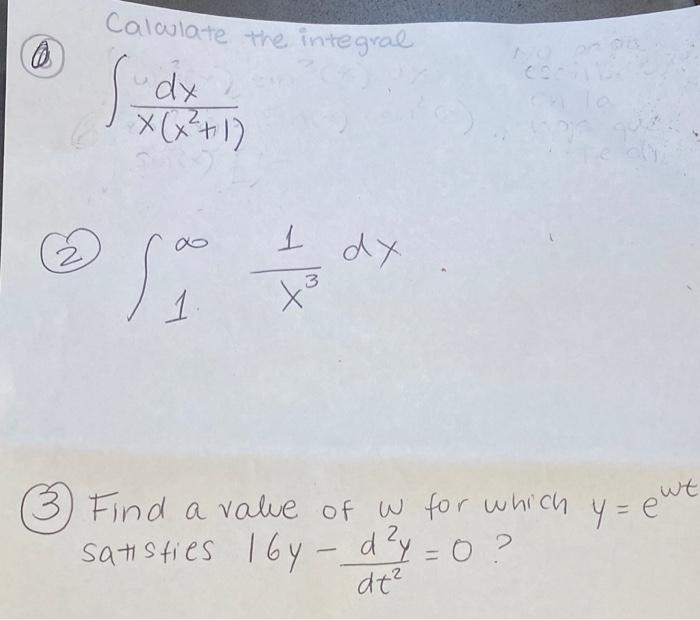 Calculate the integral
① ∫ dx / x(x²+1)
② ∫₁^∞ 1/x³ dx
③ Find a value of w for which y = e^wt
satisfies 16y - d²y/dt² = 0 ?